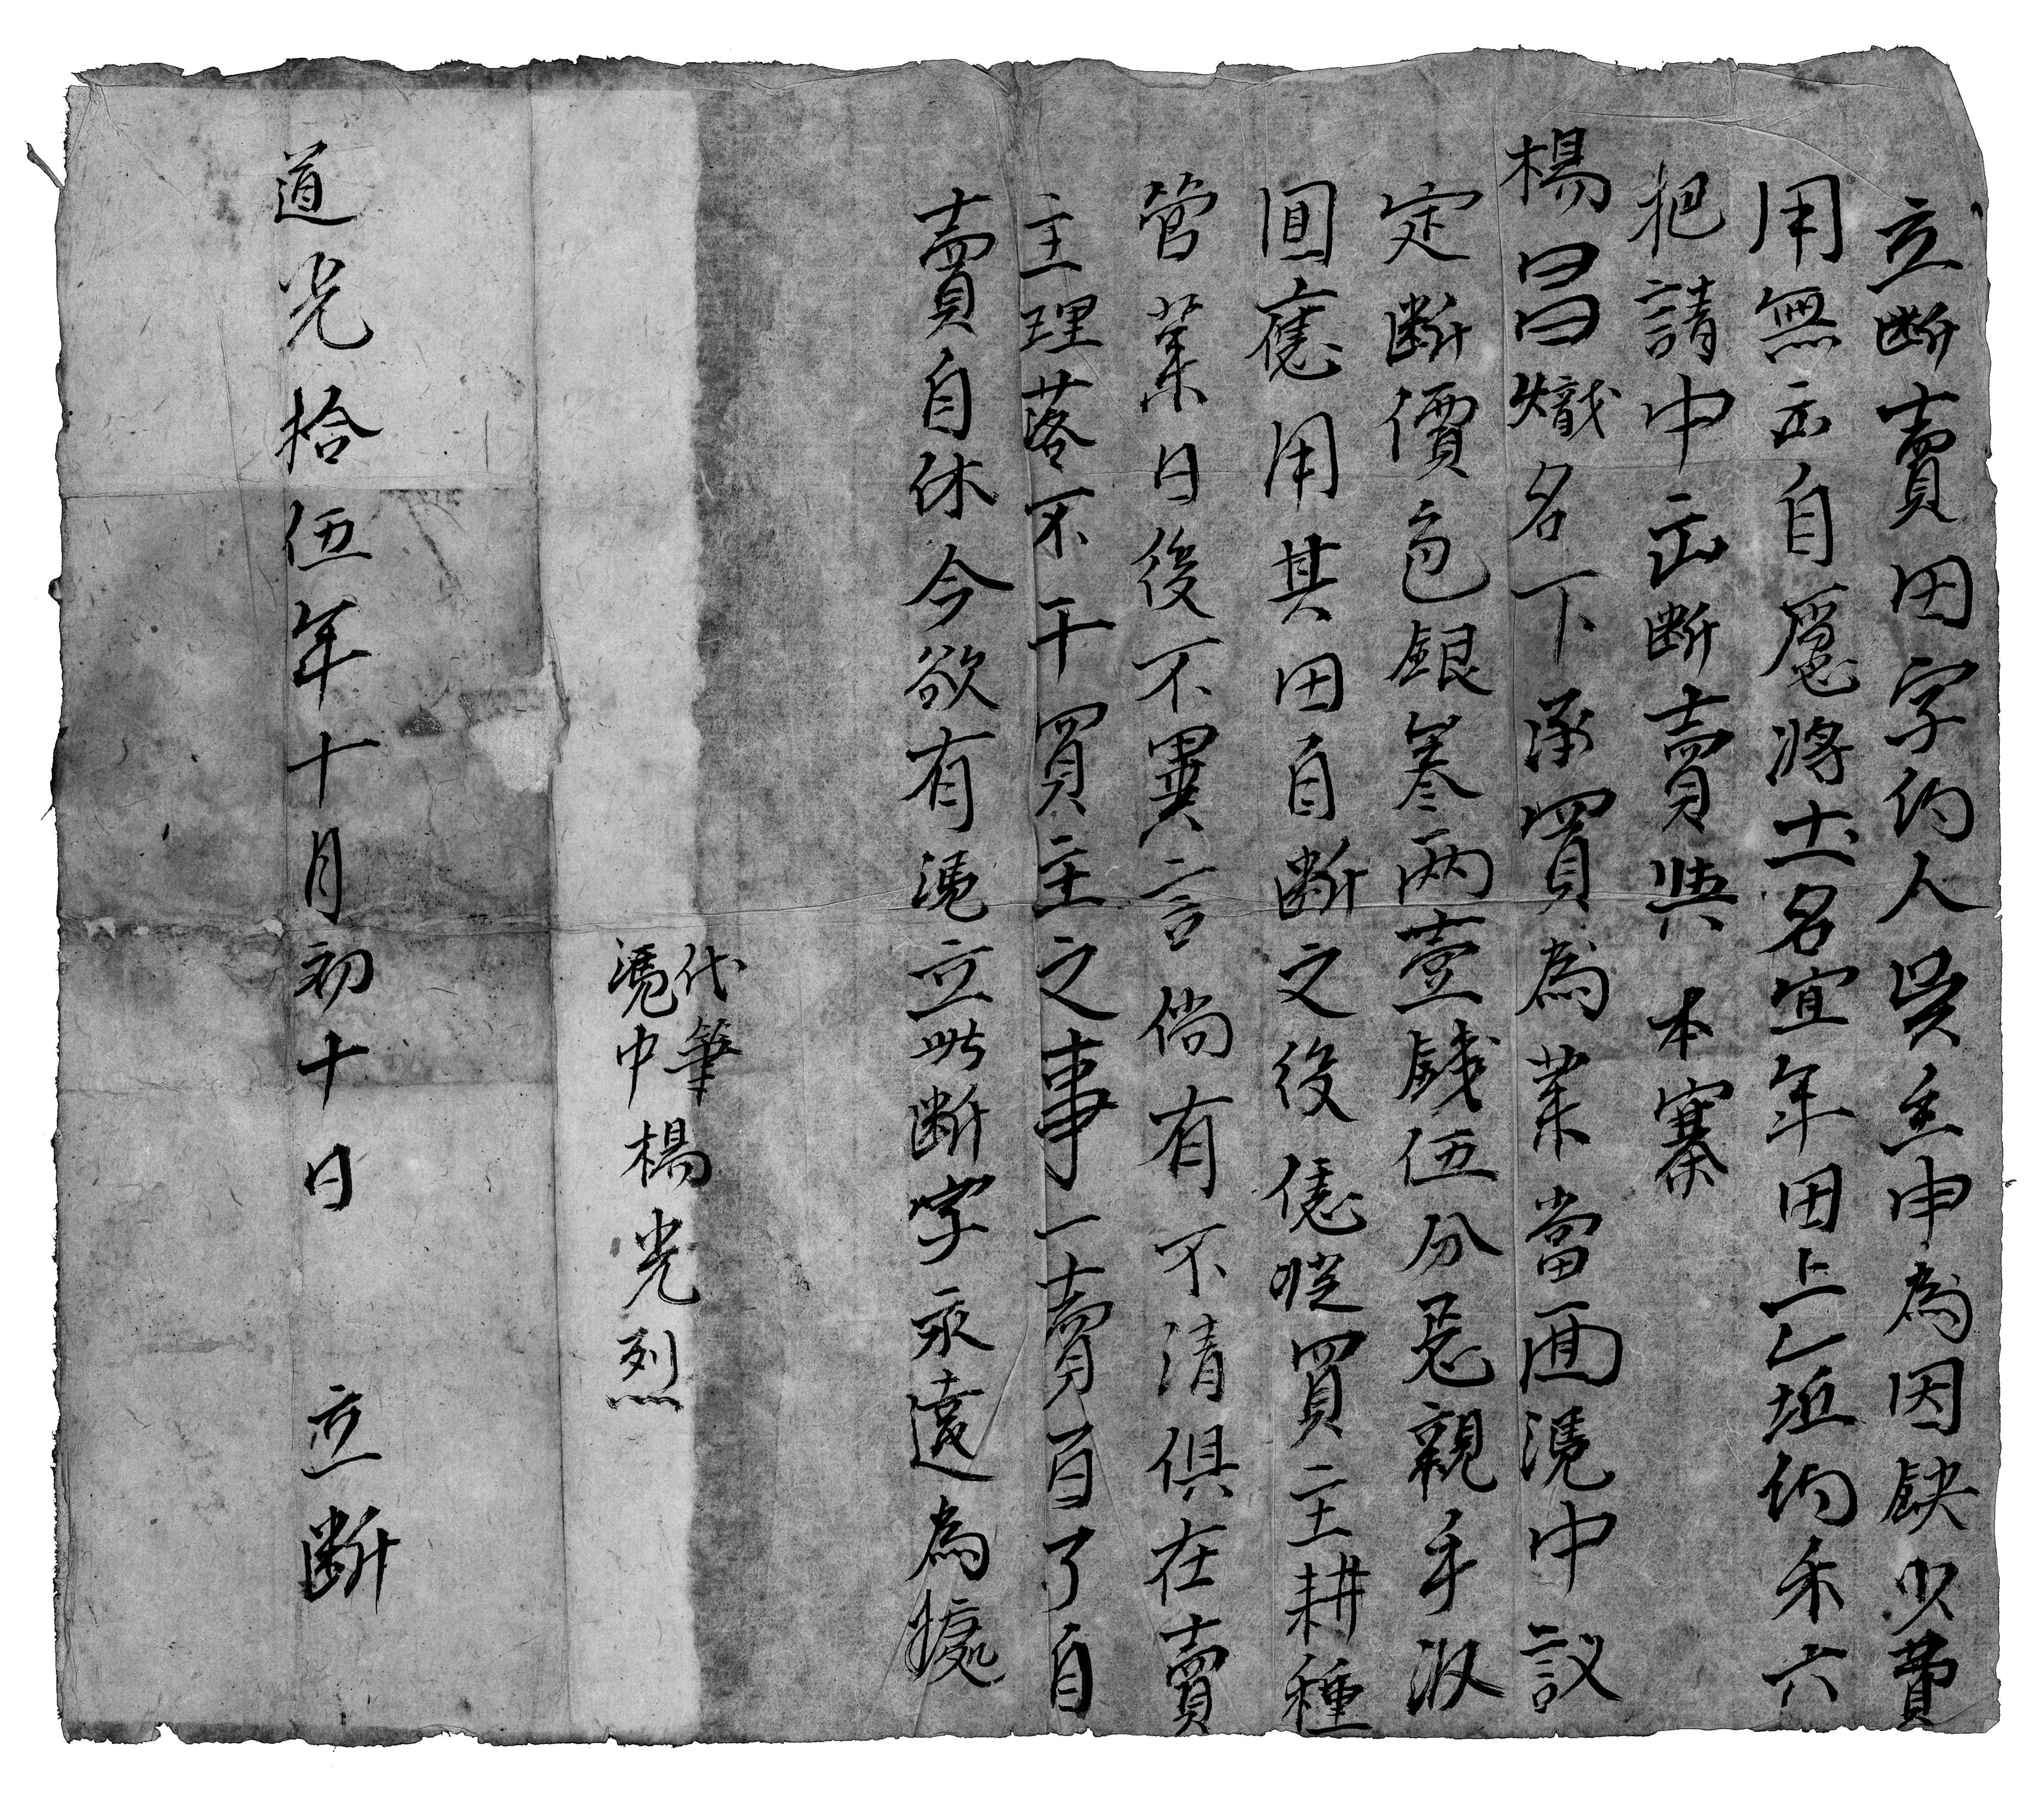 立断賣田字約人吳主申為因缺少費
用無出自愿將土名宜年田上乙坵約禾六
把請中出断賣與 本寨
楊昌熾名下承買為業當面憑中議
定断價色銀叁両壹錢伍分忍親手收
回應用其田自断之後凭從買主耕種
管業日後不異言倘有不清俱在賣
主理落不干買主之事一賣百了自
賣自休今欲有憑立此断字永遠為據
代筆
憑中 楊光烈
道光拾伍年十月初十日 立断